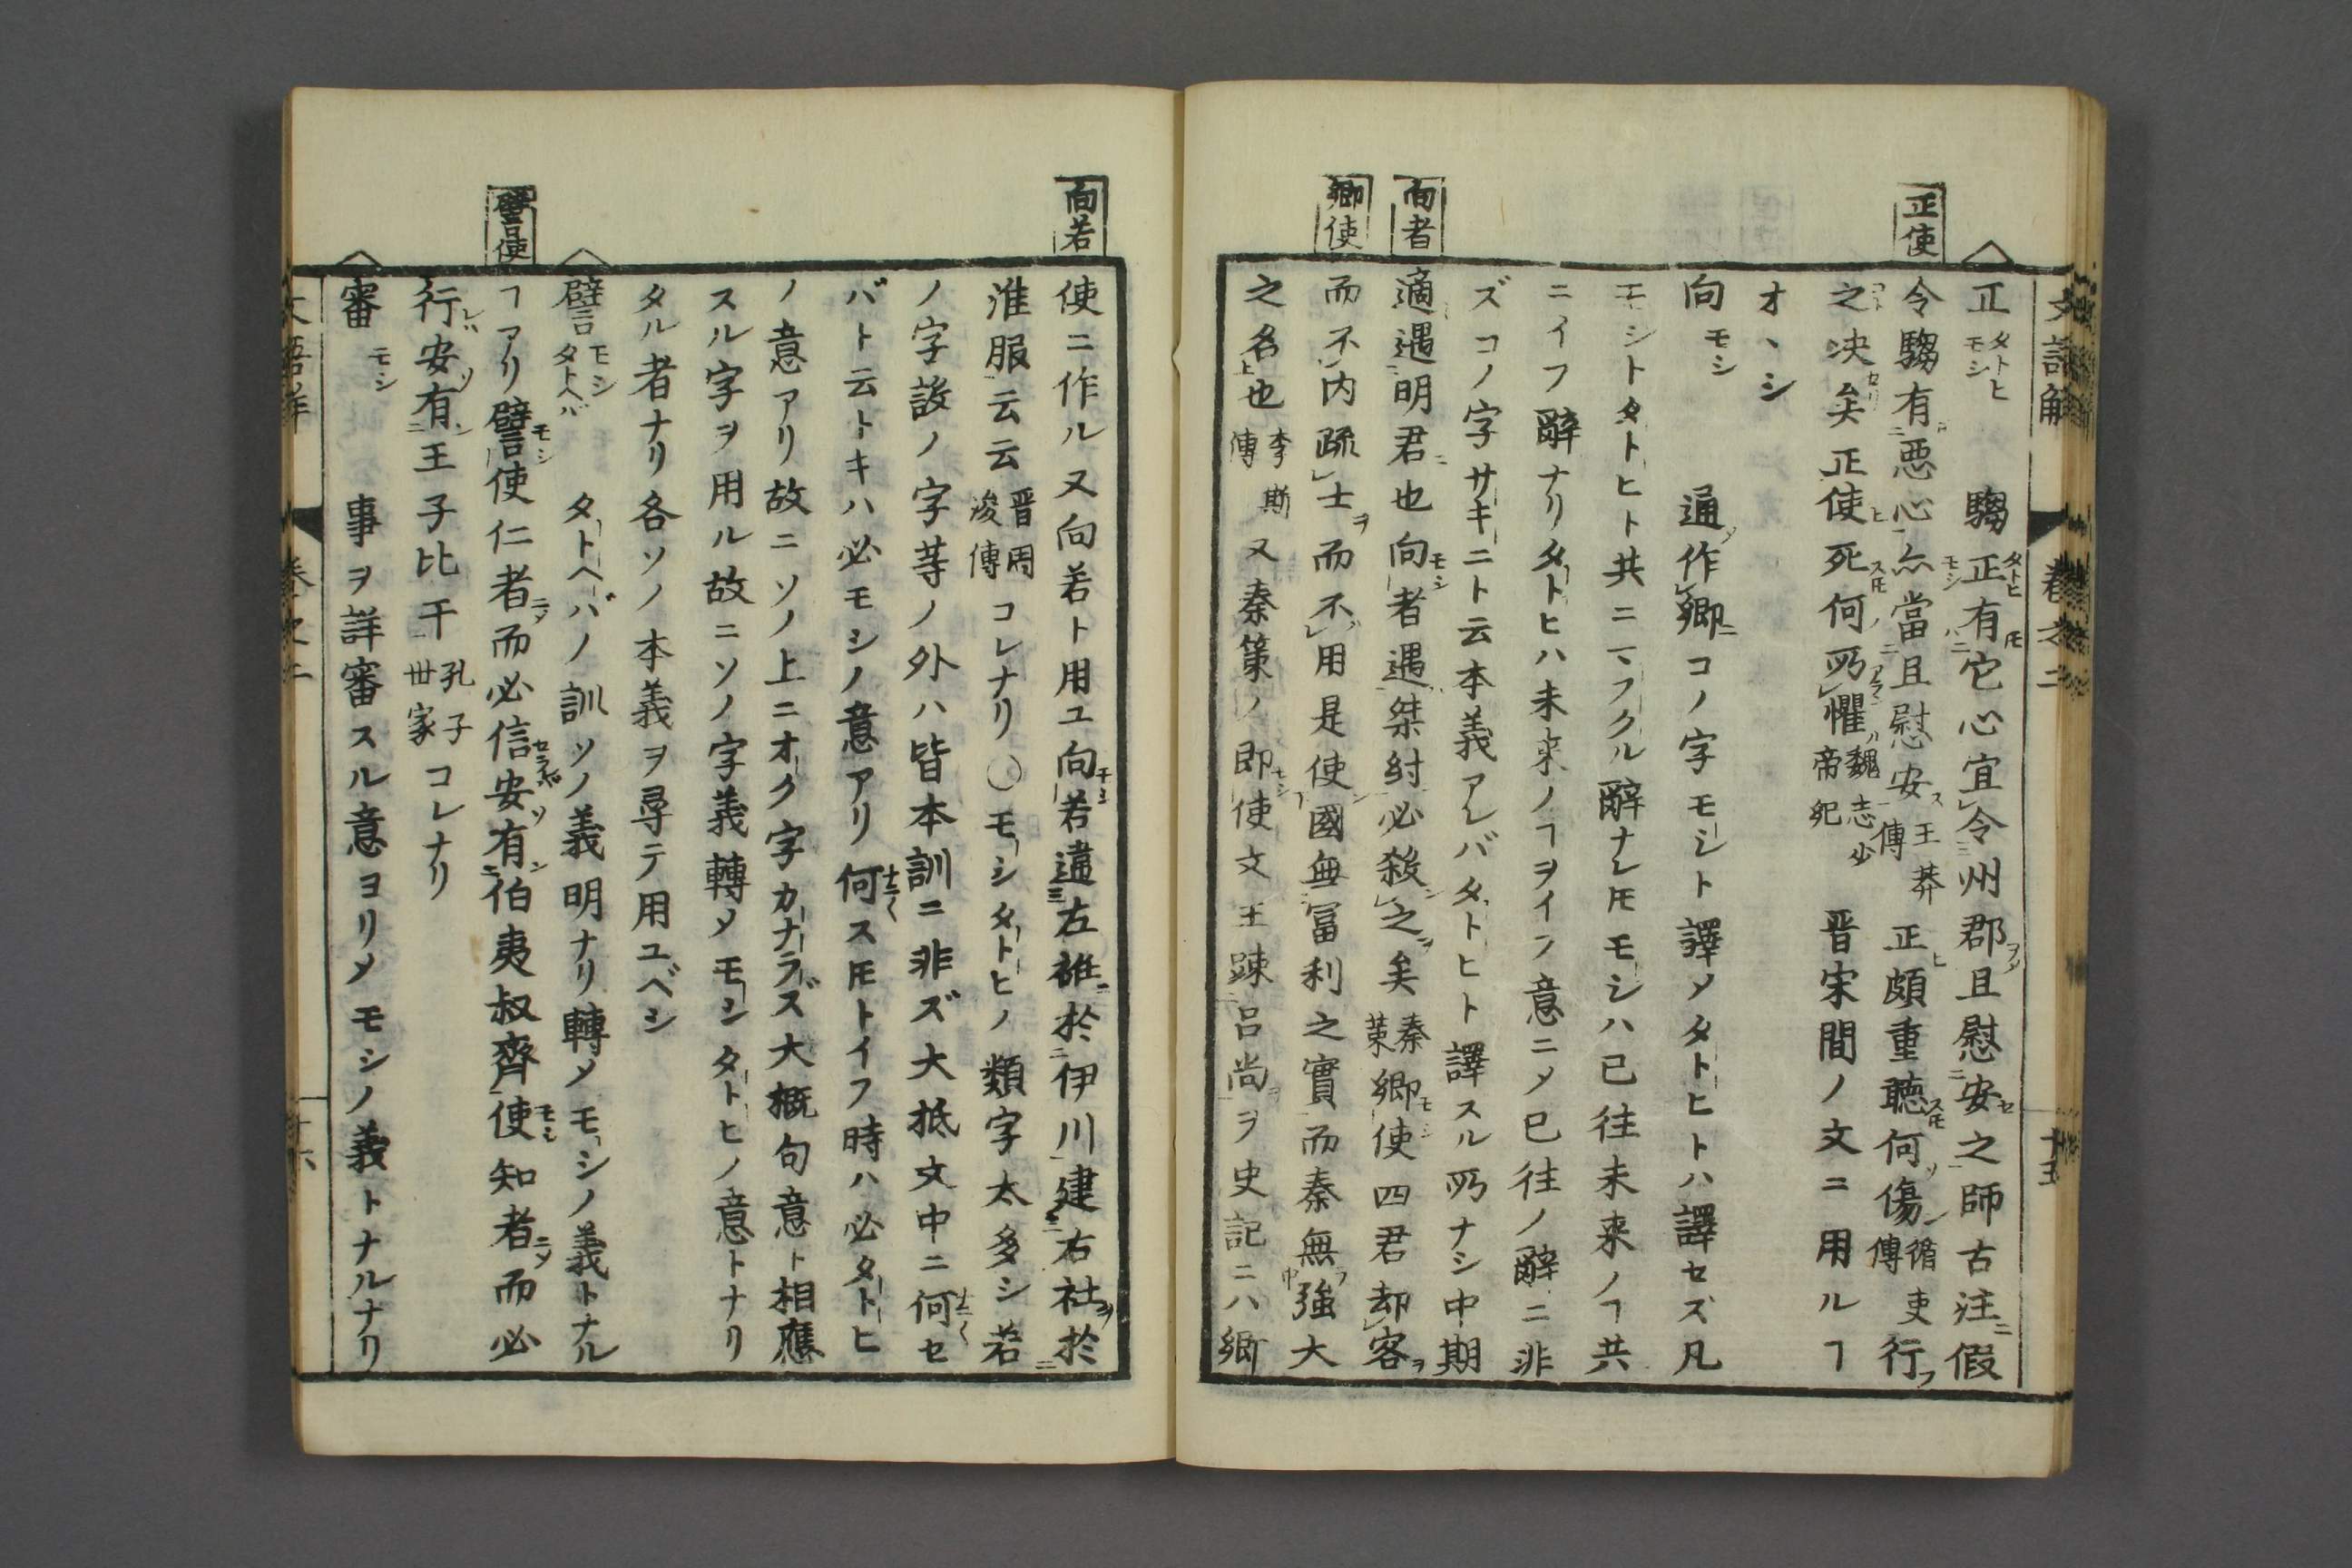 正使
正 タトヒ モシ 騶正有它心宜令州郡且慰安之師古注假
令騶有惡心亦當且慰安 王莽傳 正頗重聽何傷 循吏傳 行
之决矣正使死何所懼 魏志少帝紀 晋宋間ノ文ニ用ルヿ
オヽシ
向 モシ 通作鄕コノ字モシト譯メタトヒトハ譯セズ凡
モシトタトヒト共ニマフクル辭ナレ𪜈モシハ已往未来ノヿ共
ニイフ辭ナリタトヒハ未来ノヿヲイフ意ニメ已往ノ辭ニ非
ズコノ字サキニト云本義アレバタトヒト譯スル所ナシ中期
向者
適遇明君也向者遇桀紂必殺之矣 秦策 鄕使四君却客
鄕使
而不内疏士而不用是使國無冨利之實而秦無強大
之名也 李斯傳 又秦策ノ即使文王疎呂尚ヲ史記ニハ鄕
向若
使ニ作ル又向若ト用ユ向若違左袵於伊川建右社於
淮服云云 晋周浚傳 コレナリ〇モシタトヒノ類字太多シ若
ノ字設ノ字䓁ノ外ハ皆本訓ニ非ズ大抵文中ニ何セ
バト云トキハ必モシノ意アリ何ス𪜈トイフ時ハ必タトヒ
ノ意アリ故ニソノ上ニオク字カナラズ大概句意ト相應
スル字ヲ用ル故ニソノ字義轉メモシタトヒノ意トナリ
タル者ナリ各ソノ本義ヲ尋テ用ユベシ
譬 モシ タトヘバ タトヘバノ訓ソノ義明ナリ轉メモシノ義トナル
譬使
ヿアリ譬使仁者而必信安有伯夷叔齊使知者而必
行安有王子比干 孔子世家 コレナリ
審 モシ 事ヲ詳審スル意ヨリメモシノ義トナルナリ